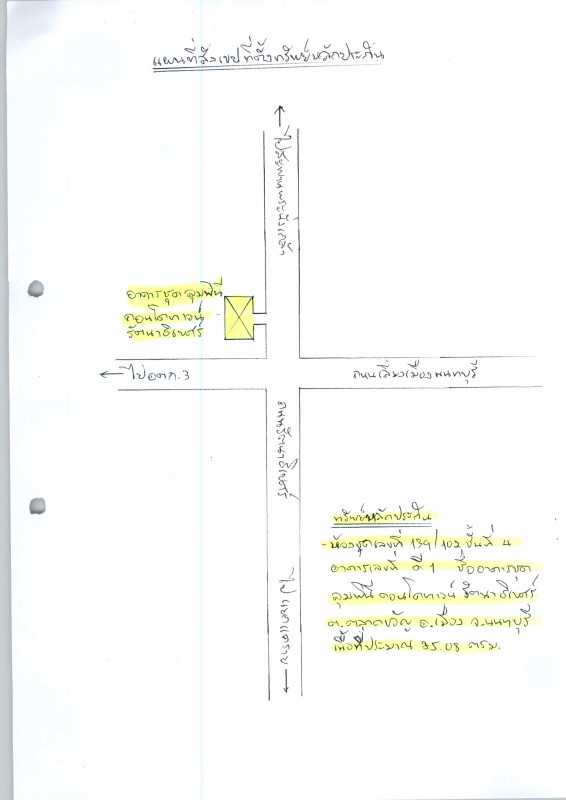 แผนที่สังเขปที่ตั้งทรัพย์หลักประกัน
ไปสะพานพระนั่งเกล้า
อาคารชุด ลุมพินี
คอนโดทาวน์
รัตนาธิเบศร์
ไป อตก.3
ถนนเลี่ยงเมืองนนทบุรี
ถนนรัตนาธิเบศร์
ไปแยกแคราย
ทรัพย์หลักประกัน
- ห้องชุดเลขที่ 139/102 ชั้นที่ 4
อาคารเลขที่ ดี 1 ชื่ออาคารชุด
ลุมพินี คอนโดทาวน์ รัตนาธิเบศร์
ต.ตลาดขวัญ อ.เมือง จ.นนทบุรี
เนื้อที่ประมาณ 25.08 ตรม.